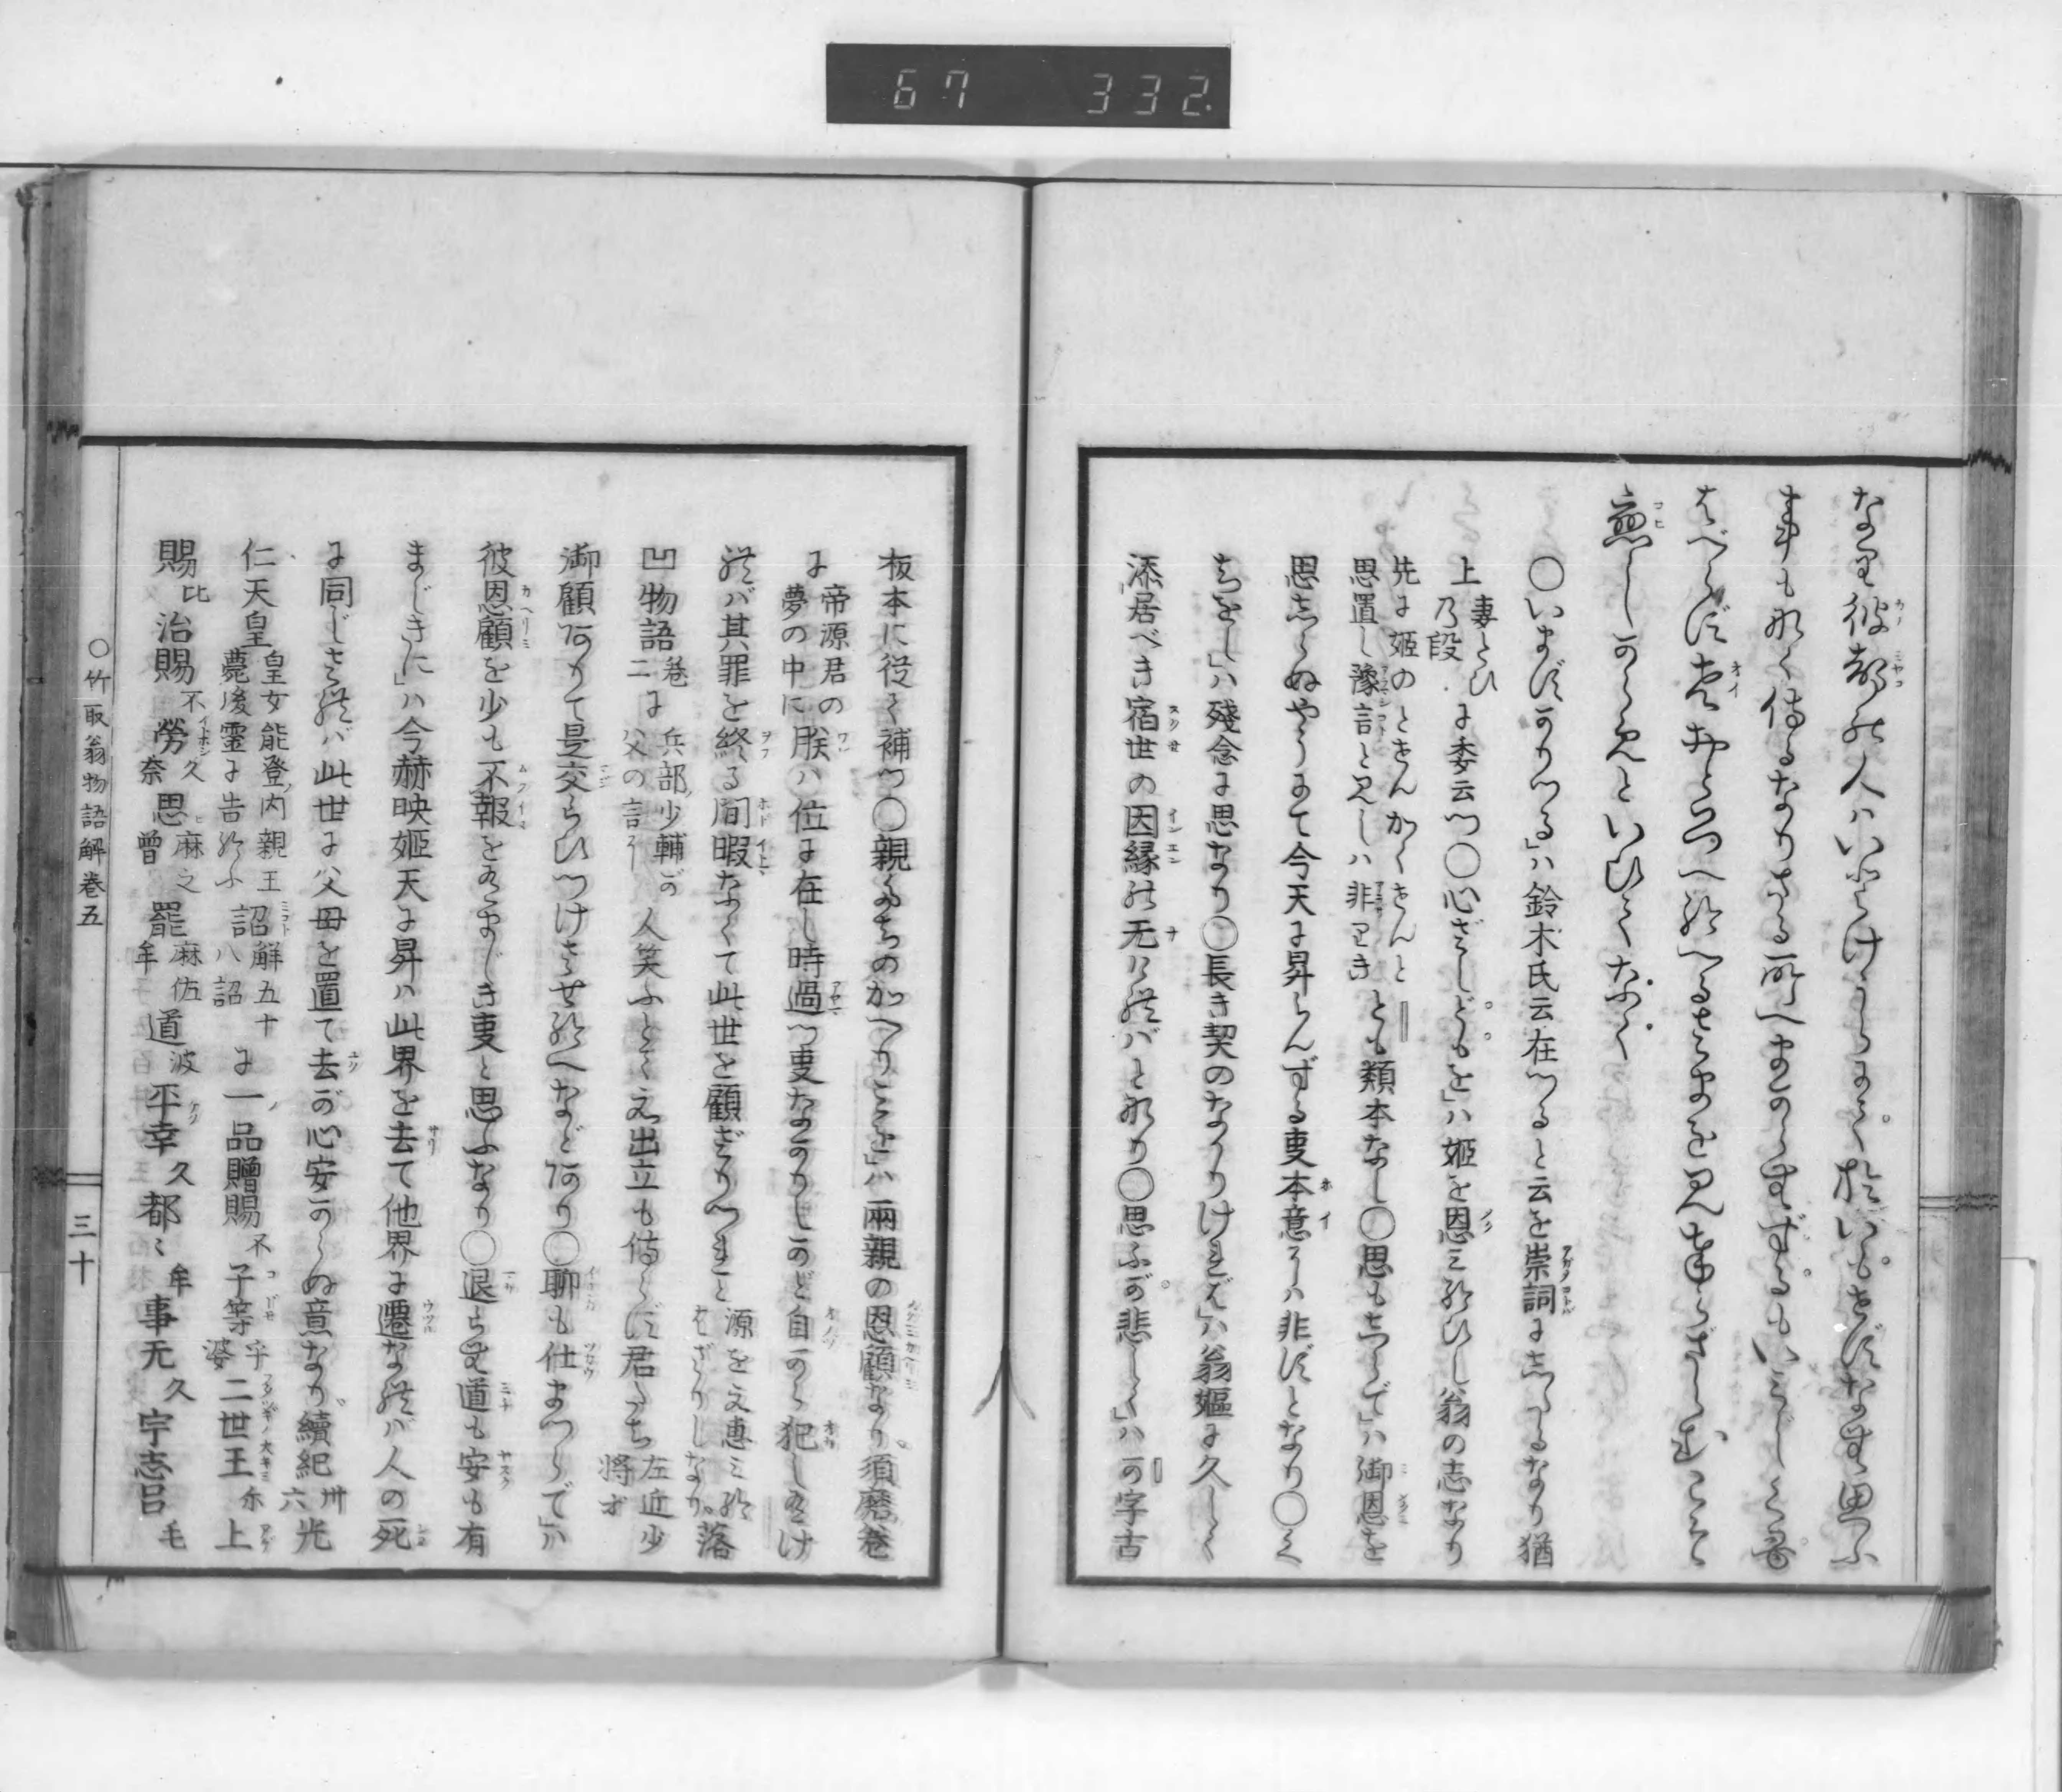 67 332.
なり彼都の人ハいとけうらにて於いもせずなむ思ふ
事も なく侍るなりさる所へまからむずるもいみじくも
はべらず老おとろへ給へるさまを見奉らざらむこそ
恋しからめといひてなく
○いますかりつる」ハ鈴木氏云在つると云を崇詞にしたるなり猶
上妻とひ乃段に委云つ○心ざしどもを」ハ姫を恩ミ給ひし翁の志なり
先に姫のときんかくきんと思置し豫言と見しハ非りきとも類本なし○思もしらで」ハ御恩を
思しらぬやうにて今天に昇らんずる事本意にハ非ずとなり○く
ちをし」ハ殘念に思なり○長き契のなかりければ」ハ翁嫗に久しく
添居べき宿世の因縁の无ければとなり○思ふが悲しく」ハが字古
板本に従て補つ○親たちのかへりミを」ハ兩親の恩顧なり須磨巻
に帝源君の夢の中に朕ハ位に在し時過つ事なかりしかど自から犯しありけ
れバ其罪を終る間暇なくて此世を顧ざりつれと源をえ恵ミ給はざりしなり落
凹物語巻二に兵部少輔が父の言に人笑ふとてえ出立も侍らず君たち左近少将才
御顧ありて是交らひつけさせ給へなどあり○聊も仕まつらで」ハ
彼恩顧を少も不報をあまじき事と思ふなり○退らむ道も安も有
まじきに」ハ今赫映姫天に昇ハ此界を去て他界に遷なれバ人の死
に同じされバ此世に父母を置て去が心安からぬ意なり續紀卅六光
仁天皇皇女能登内親王薨後霊に告給ふ詔解五十八詔に一品贈賜不子等乎婆二世王尓上
賜比治賜不勞久奈思麻之曾罷麻佐牟道波平幸久都々牟事无久宇志呂毛
○竹取翁物語解巻五
三十